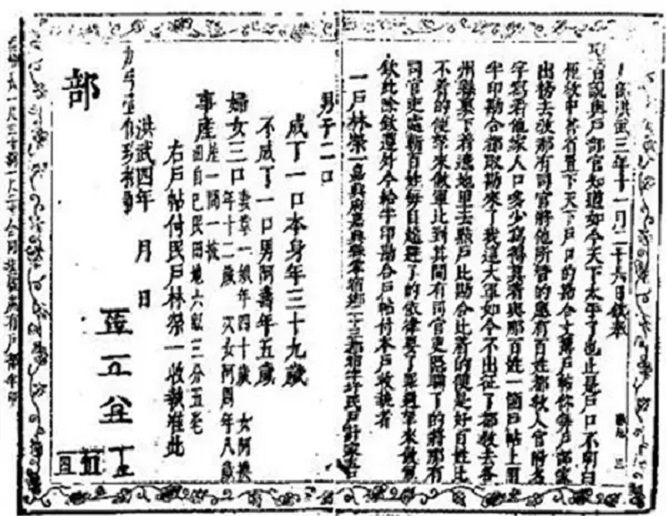 戶部洪武三年十一月二十六日欽奉
聖旨說與戶部官知道如今天下太平了也止是戶口不明白
俚教中書省置下天下戶口的勘合文簿戶帖你每戶部家
出榜去教那有司官將他所管的應有百姓都教入官附名
字寫着他家人口多少寫得真着與那百姓一箇戶帖上用
半印勘合都取勘來了我這大軍如今不出征了都教去各
州縣裏下着遶地里去點戶比勘合比着的便是好百姓比
不着的便拏來做軍比到其間有司官吏隱瞞了的將那有
司官吏處斬百姓每自躲避了的依律要了罪過拏來做軍
欽此除欽遵外今給半印勘合戶帖付本戶收執者
一戶林榮一嘉興府嘉興縣零宿鄉二十三都宿字圩民戶計家五
男子二口
成丁一口本身年三十九歲
不成丁一口男阿壽年五歲
婦女三口妻章一娘年四十歲 女阿換
年十二歲 次女阿周年八歲
事產屋一間一披
田自己民田地六畝三分五毛
右戶帖付民戶林榮一收執准此
洪武四年 月 日
部